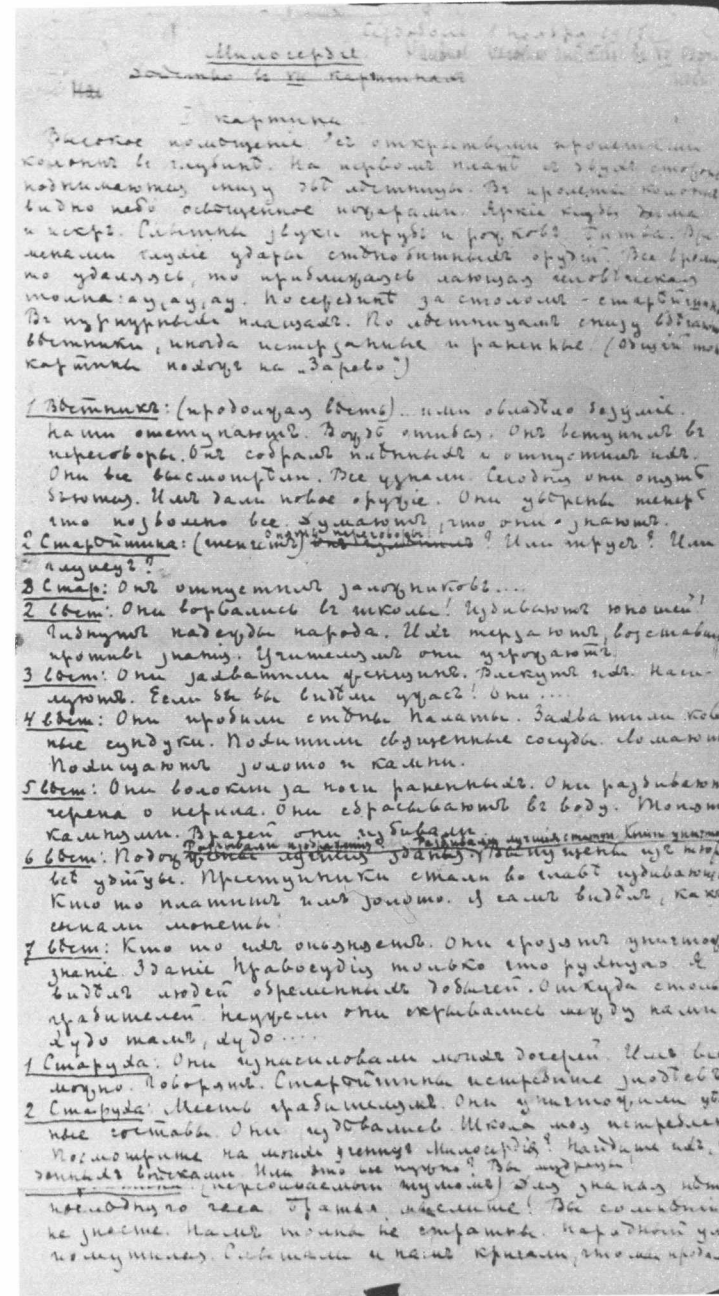 Сердоболь ноября
Милосердіе
действо въ VII картинахъ
I картина
Высокое помѣщеніе съ открытыми пролетами
колоннъ въ глубинѣ. На первомъ планѣ съ двухъ сторонъ
поднимаются снизу двѣ лѣстницы. Въ пролеты колоннъ
видно небо освѣщенное пожарами. Яркіе клубы дыма
и искръ. Слышны звуки трубъ и рожковъ. Битва. Вре-
менами глухіе удары стѣнобитныхъ орудій. Все время
то удаляясь, то приближаясь лающая человѣческая
толпа: ау, ау, ау. Посерединѣ за столомъ - старѣйшины
Въ пурпурныхъ плащахъ. По лѣстницамъ снизу вбѣгаютъ
вѣстники, иногда истерзанные и раненные. (Общій тонъ
картины похожъ на „Зарево“)
1 Вѣстникъ: (продолжая вѣсть)... ими овладѣло безуміе.
Наши отступаютъ. Вождь ошибся. Онъ вступилъ въ
переговоры. Онъ собралъ плѣнныхъ и отпустилъ ихъ.
Они все высмотрѣли. Все узнали. Сегодня они опять
бьются. Имъ дали новое оружіе. Они увѣрены теперь
что позволено все. Думаютъ, что они знаютъ.
2 Старѣйшина: (шепчетъ) Опять переговоры! ? Или трусъ? Или
глупецъ?
3 Стар: Онъ отпустилъ заложниковъ....
2 вѣст: Они ворвались въ школы! Избиваютъ юношей!
Гибнутъ надежды народа. Ихъ терзаютъ, возставши
противъ знанія. Учителямъ они угрожаютъ.
3 вѣст: Они захватили женщинъ. Влекутъ ихъ. Наси-
луютъ. Если бы вы видѣли ужасъ! Они....
4 вѣст: Они пробили стѣны Палаты. Захватили ков
ные сундуки. Похитили священные сосуды. Ломаютъ
Похищаютъ золото и камни.
5 вѣст: Они волокли за ноги раненныхъ. Они разбиваютъ
черепа о перила. Они сбрасываютъ въ воду. Топятъ
камнями. Врачей они избивали
6 вѣст: Подожжены лучшія зданья. Выпущены изъ тюр
всѣ убійцы. Преступники стали во главѣ избивающ
Кто то платитъ имъ золото. Я самъ видѣлъ, какъ
сыпали монеты!
7 вѣст: Кто то ихъ опьяняетъ. Они грозятъ уничтож
знаніе. Зданіе Правосудія только что рухнуло. Я
видѣлъ людей обремененныхъ добычей. Откуда столь
грабителей. Неужели они скрывались между нами
Худо тамъ, худо....
1 Старуха: Они изнасиловали моихъ дочерей. Имъ все
можно. Говорятъ. Старѣйшины истребите злодѣевъ
2 Старуха: Месть грабителямъ. Они уничтожили
ные составы. Они издѣвались. Школа моя истреблена
Посмотрите на моихъ ученицъ Милосердія! Найдите ихъ,
войсками. Или это не нужно? Вы мудрецы!
(пересиливаемый шумомъ) Для знанія нѣтъ
послѣдняго часа. Братья, мыслите! Вы сомнѣній
не знаете. Намъ толпа не страшна. Народный ум
помутился. Слышали и намъ кричали, что мы прода